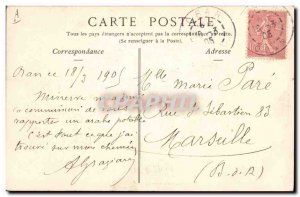 CARTE POSTALE
Tous les pays étrangers n'acceptent pas la correspondance au recto.
(Se renseigner à la Poste)
Correspondance
Adresse
Oran ce 18/3 1905
Minerve
commission de
rapporter un arabe potable
C'est tout ce que j'ai
trouvé sur mon chemin
Mlle Marie Paré
Rue St Sébastien 83
Marseille
(B-d-R)